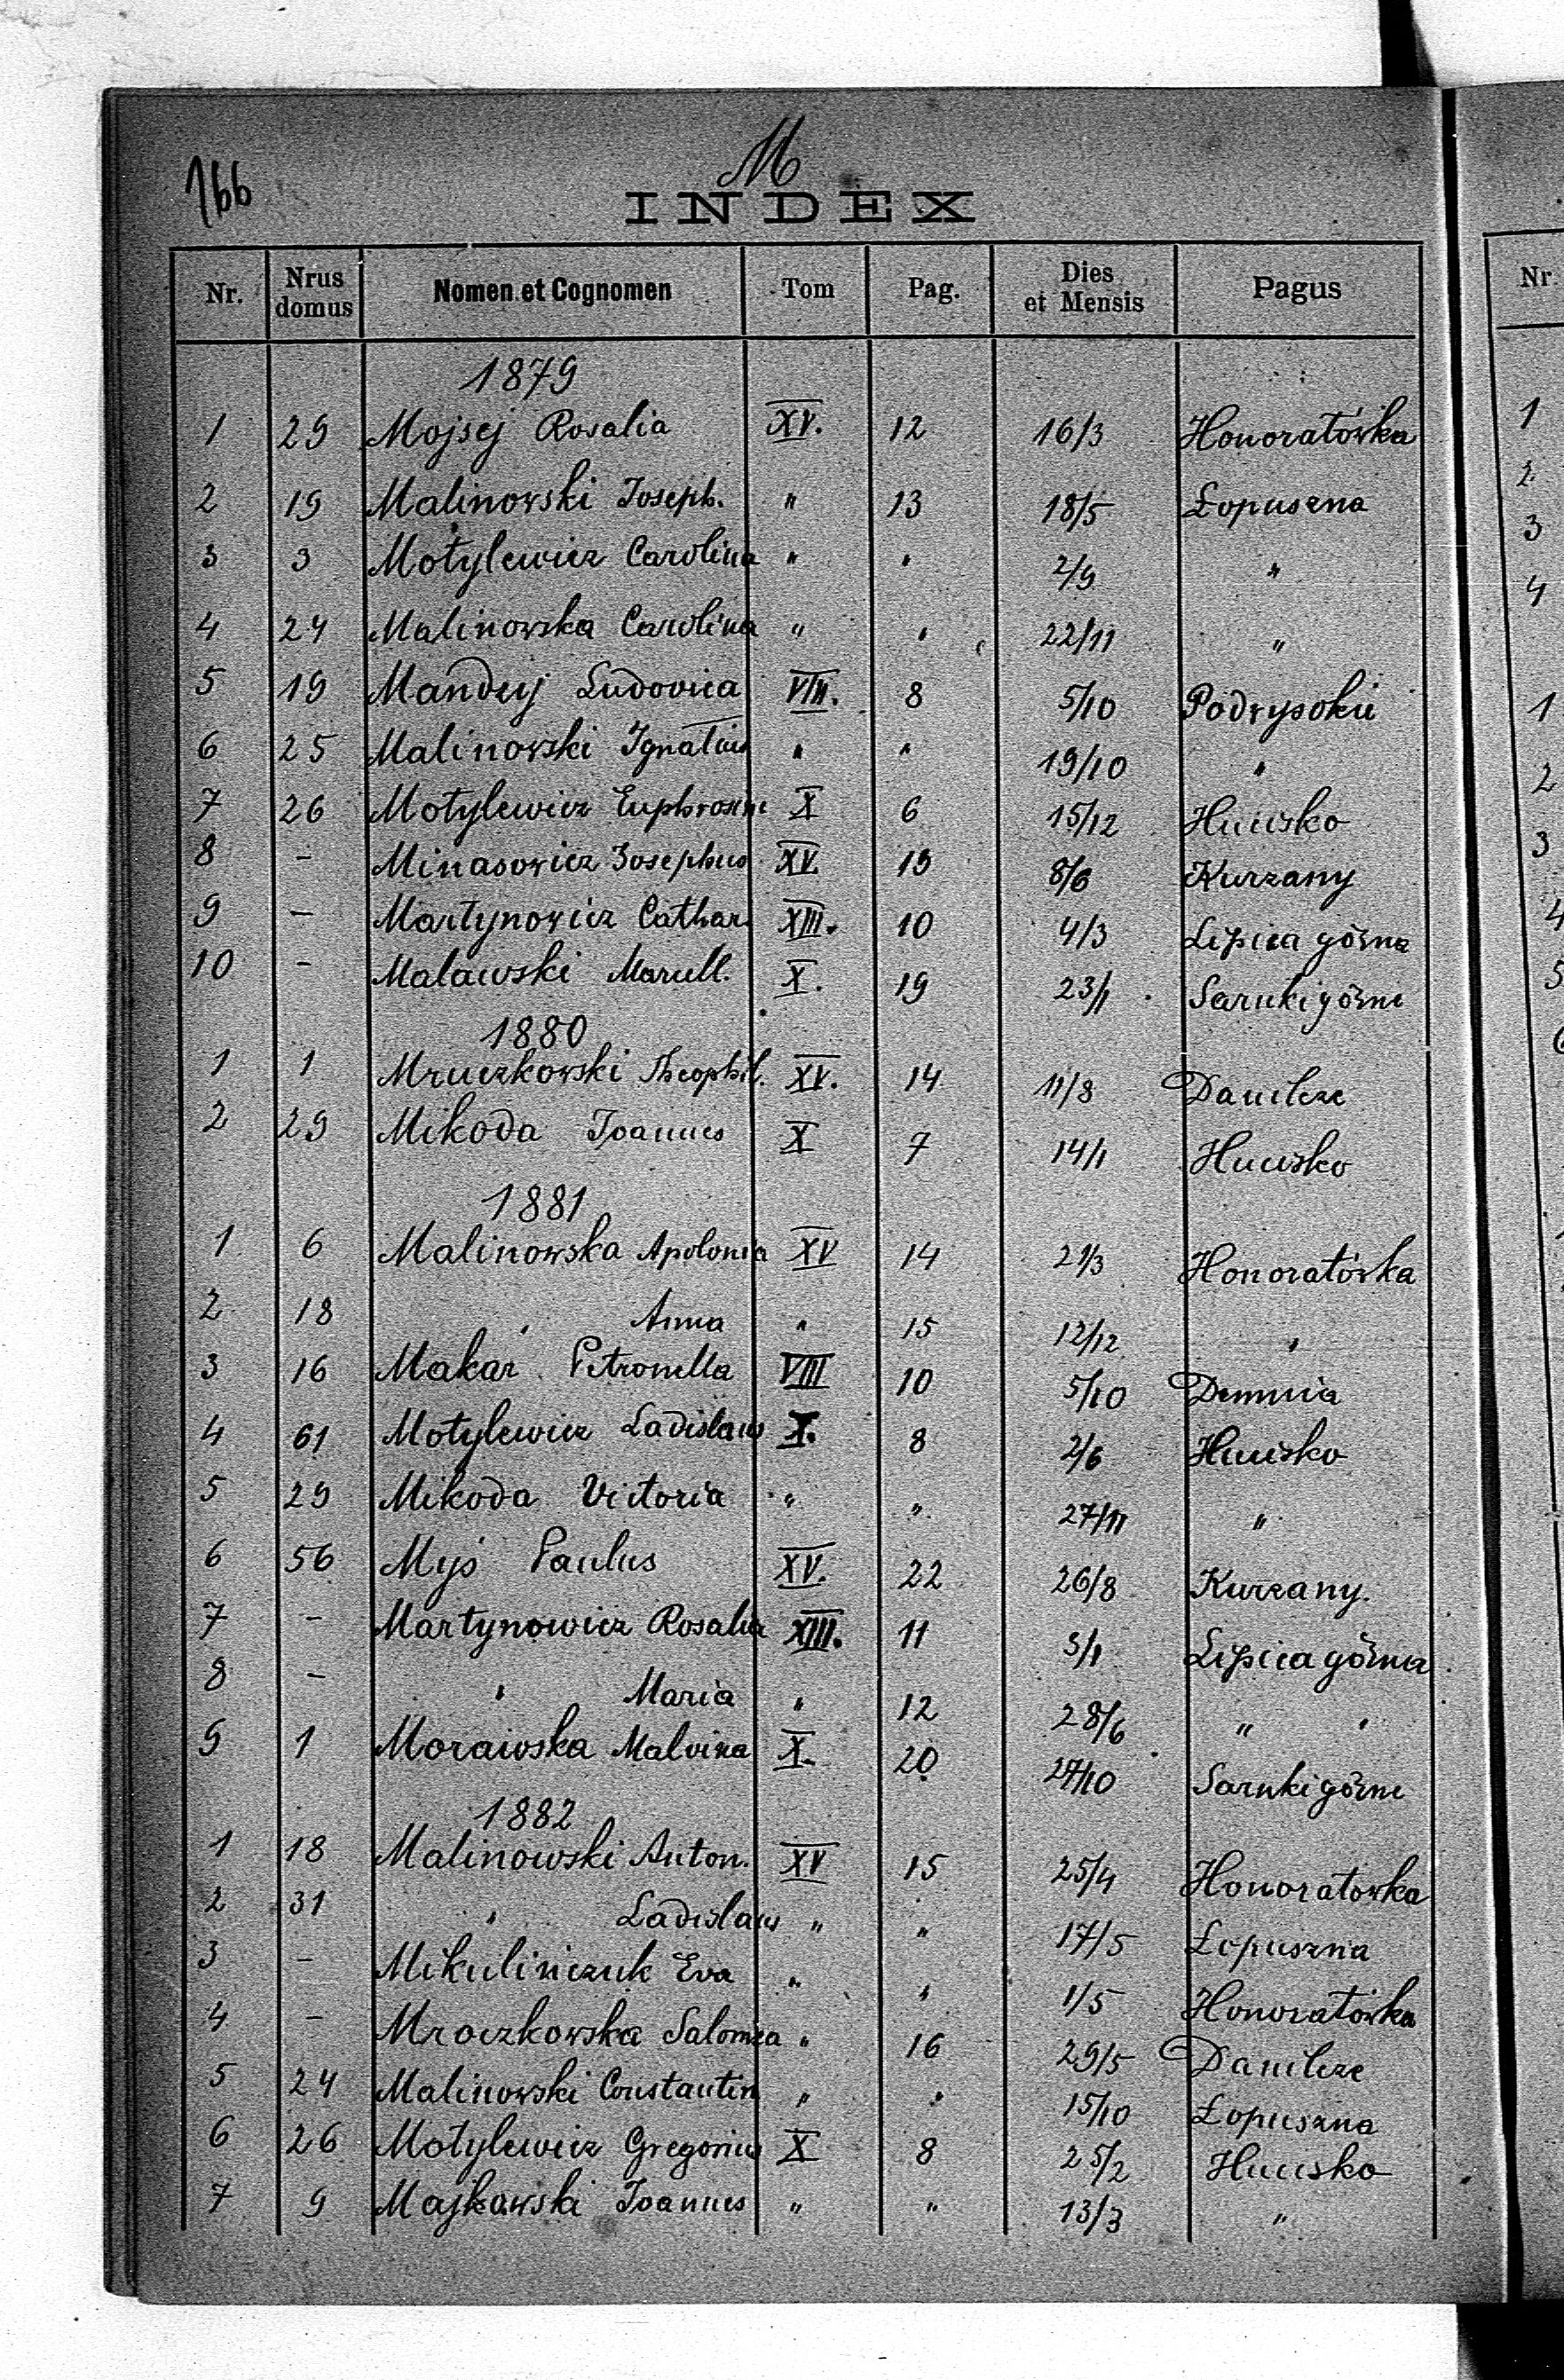 166
M
INDEX
Nr. Nrus domus Nomen et Cognomen Tom Pag. Dies et Mensis Pagus
1879
1 29 Mojsej Rosalia XV. 12 16/3 Honoratówka
2 19 Malinowski Joseph. " 13 18/5 Łopuszna
3 3 Motylewicz Carolina " " 2/9 "
4 24 Malinowska Carolina " " 22/11 "
5 19 Mandej Ludovica VIII. 8 5/10 Podwysokie
6 25 Malinowski Ignatius " " 19/10 "
7 26 Motylewicz Euphrosine X 6 15/12 Hucisko
8 - Minasowicz Josephus XV. 19 8/6 Kurzany
9 - Martynowicz Cathar. XIII. 10 4/3 Lipica górna
10 - Malawski Marcell. X. 19 23/1 Sarnki górne
1880
1 1 Mruczkowski Theophil. XV. 14 11/8 Danilcze
2 29 Mikoda Joannes X 7 14/1 Hucisko
1881
1 6 Malinowska Apolonia XV 14 21/3 Honoratówka
2 18 " Anna " 15 12/12 "
3 16 Makar Petronella VIII 10 5/10 Demnia
4 61 Motylewicz Ladislaus X. 8 2/6 Hucisko
5 29 Mikoda Victoria " " 27/11 "
6 56 Myś Paulus XV. 22 26/8 Kurzany.
7 - Martynowicz Rosalia XIII. 11 3/1 Lipica górna
8 - " Maria " 12 28/6 " "
9 1 Morawska Malvina X. 20 27/10 Sarnki górne
1882
1 18 Malinowski Anton. XV 15 25/4 Honoratowka
2 31 " Ladislaus " " 17/5 Łopuszna
3 - Mikulińczuk Eva " " 1/5 Honoratówka
4 - Mroczkowska Salomea " 16 29/5 Danilcze
5 24 Malinowski Constantin " " 15/10 Łopuszna
6 26 Motylewicz Gregorius X 8 25/2 Hucisko
7 9 Majkowski Joannes " " 13/3 "
Nr
1
2
3
4
1
2
3
4
5
6